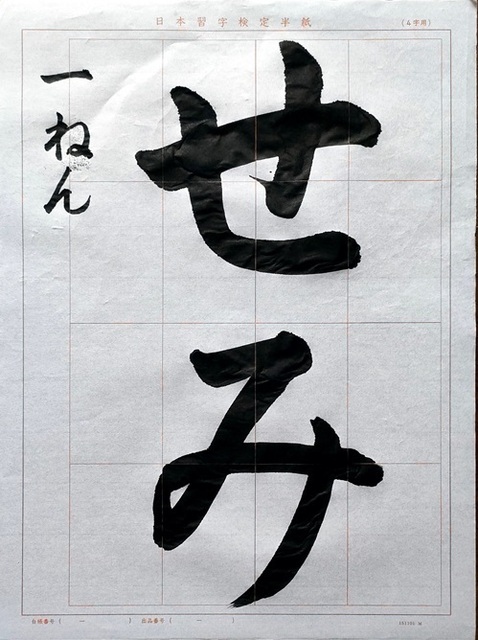 日本習字検定半紙
(4字用)
せみ
一ねん